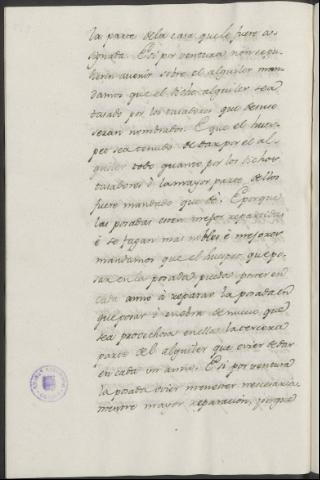 la parte dela casa que le fuere as
signata. E si por ventura non se pu
dierin avenir sobre el alquiler man
damos que el dicho alquiler sea
tasado por los tasadores que deuso
seran nombrados. E que el hues
ped sea tenudo de dar por el al
quiler todo quanto por los dichos
tasadores ò la mayor parte dellos
fuere mandado que dè. E porque
las posadas esten mejor repartidas
è se fagan mas nobles è mejores
mandamos que el huesped, que po
sare en la posada pueda poner en
cada anno à reparar la posada en
que posare è en obra de nuevo, que
sea provechosa en ella la tercera
parte del alquiler que oviere de dar
en cada un anno. E si por ventura
la posada ovier menester necesaria
mente mayor reparacion, porque